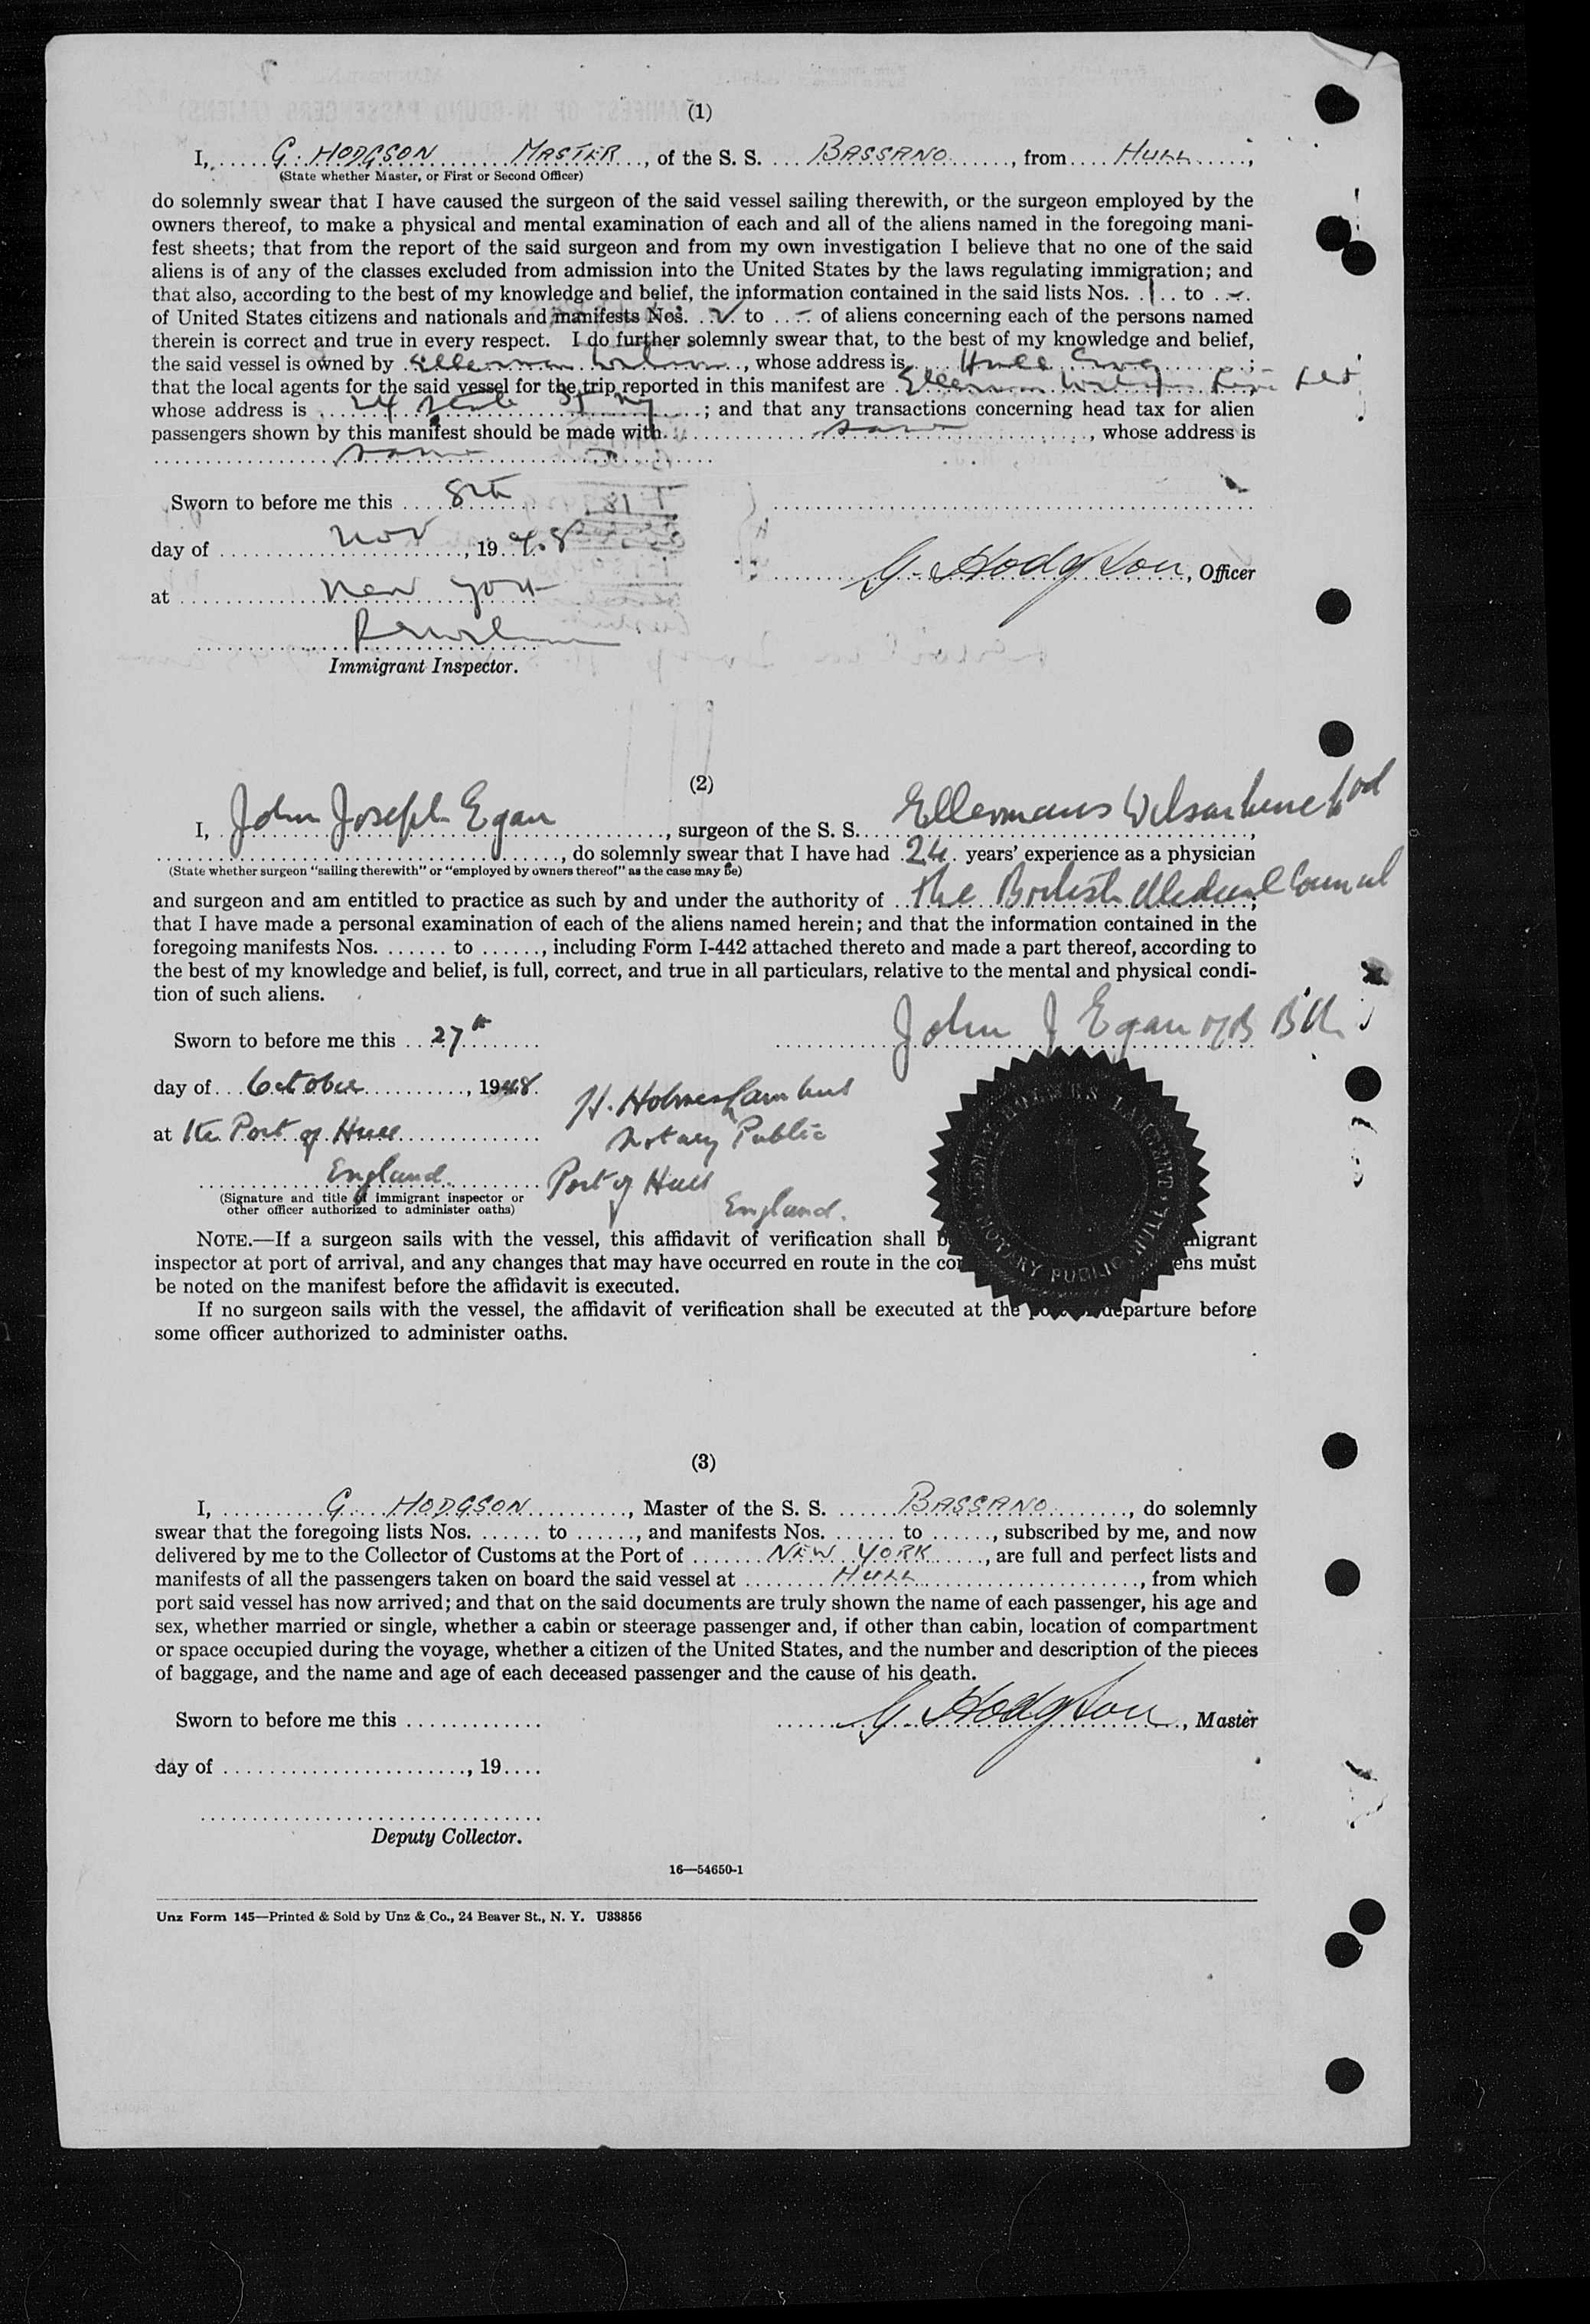 (1)
I, G. HODGSON MASTER, of the S. S. BASSANO, from HULL,
(State whether Master, or First or Second Officer)
do solemnly swear that I have caused the surgeon of the said vessel sailing therewith, or the surgeon employed by the
owners thereof, to make a physical and mental examination of each and all of the aliens named in the foregoing mani-
fest sheets; that from the report of the said surgeon and from my own investigation I believe that no one of the said
aliens is of any of the classes excluded from admission into the United States by the laws regulating immigration; and
that also, according to the best of my knowledge and belief, the information contained in the said lists Nos. 1 to -
of United States citizens and nationals and manifests Nos. to - of aliens concerning each of the persons named
therein is correct and true in every respect. I do further solemnly swear that, to the best of my knowledge and belief,
the said vessel is owned by Ellerman Wilson, whose address is Hull Eng;
that the local agents for the said vessel for the trip reported in this manifest are Ellerman Wilson Line Ltd
whose address is 24 State St NY; and that any transactions concerning head tax for alien
passengers shown by this manifest should be made with same, whose address is
same
Sworn to before me this 8th
day of Nov, 1948
G. Hodgson, Officer
at New York
Immigrant Inspector.
(2)
I, John Joseph Egan, surgeon of the S. S. Ellermans Wilson Line Ltd,
, do solemnly swear that I have had 24 years' experience as a physician
(State whether surgeon "sailing therewith" or "employed by owners thereof" as the case may be)
and surgeon and am entitled to practice as such by and under the authority of the British Medical Council;
that I have made a personal examination of each of the aliens named herein; and that the information contained in the
foregoing manifests Nos. to , including Form I-442 attached thereto and made a part thereof, according to
the best of my knowledge and belief, is full, correct, and true in all particulars, relative to the mental and physical condi-
tion of such aliens.
John J Egan MB BCh
Sworn to before me this 27th
day of October, 1948.
H. Holmes Lambert
at the Port of Hull
Notary Public
England.
Port of Hull
England.
(Signature and title of immigrant inspector or
other officer authorized to administer oaths)
HOLMES LAMBERT, NOTARY PUBLIC HULL
NOTE.—If a surgeon sails with the vessel, this affidavit of verification shall b migrant
inspector at port of arrival, and any changes that may have occurred en route in the con ens must
be noted on the manifest before the affidavit is executed.
If no surgeon sails with the vessel, the affidavit of verification shall be executed at the departure before
some officer authorized to administer oaths.
(3)
I, G. HODGSON, Master of the S. S. BASSANO, do solemnly
swear that the foregoing lists Nos. to , and manifests Nos. to , subscribed by me, and now
delivered by me to the Collector of Customs at the Port of NEW YORK, are full and perfect lists and
manifests of all the passengers taken on board the said vessel at HULL, from which
port said vessel has now arrived; and that on the said documents are truly shown the name of each passenger, his age and
sex, whether married or single, whether a cabin or steerage passenger and, if other than cabin, location of compartment
or space occupied during the voyage, whether a citizen of the United States, and the number and description of the pieces
of baggage, and the name and age of each deceased passenger and the cause of his death.
Sworn to before me this
G. Hodgson, Master
day of , 19
Deputy Collector.
16—54650-1
Unz Form 145—Printed & Sold by Unz & Co., 24 Beaver St., N. Y. U33856